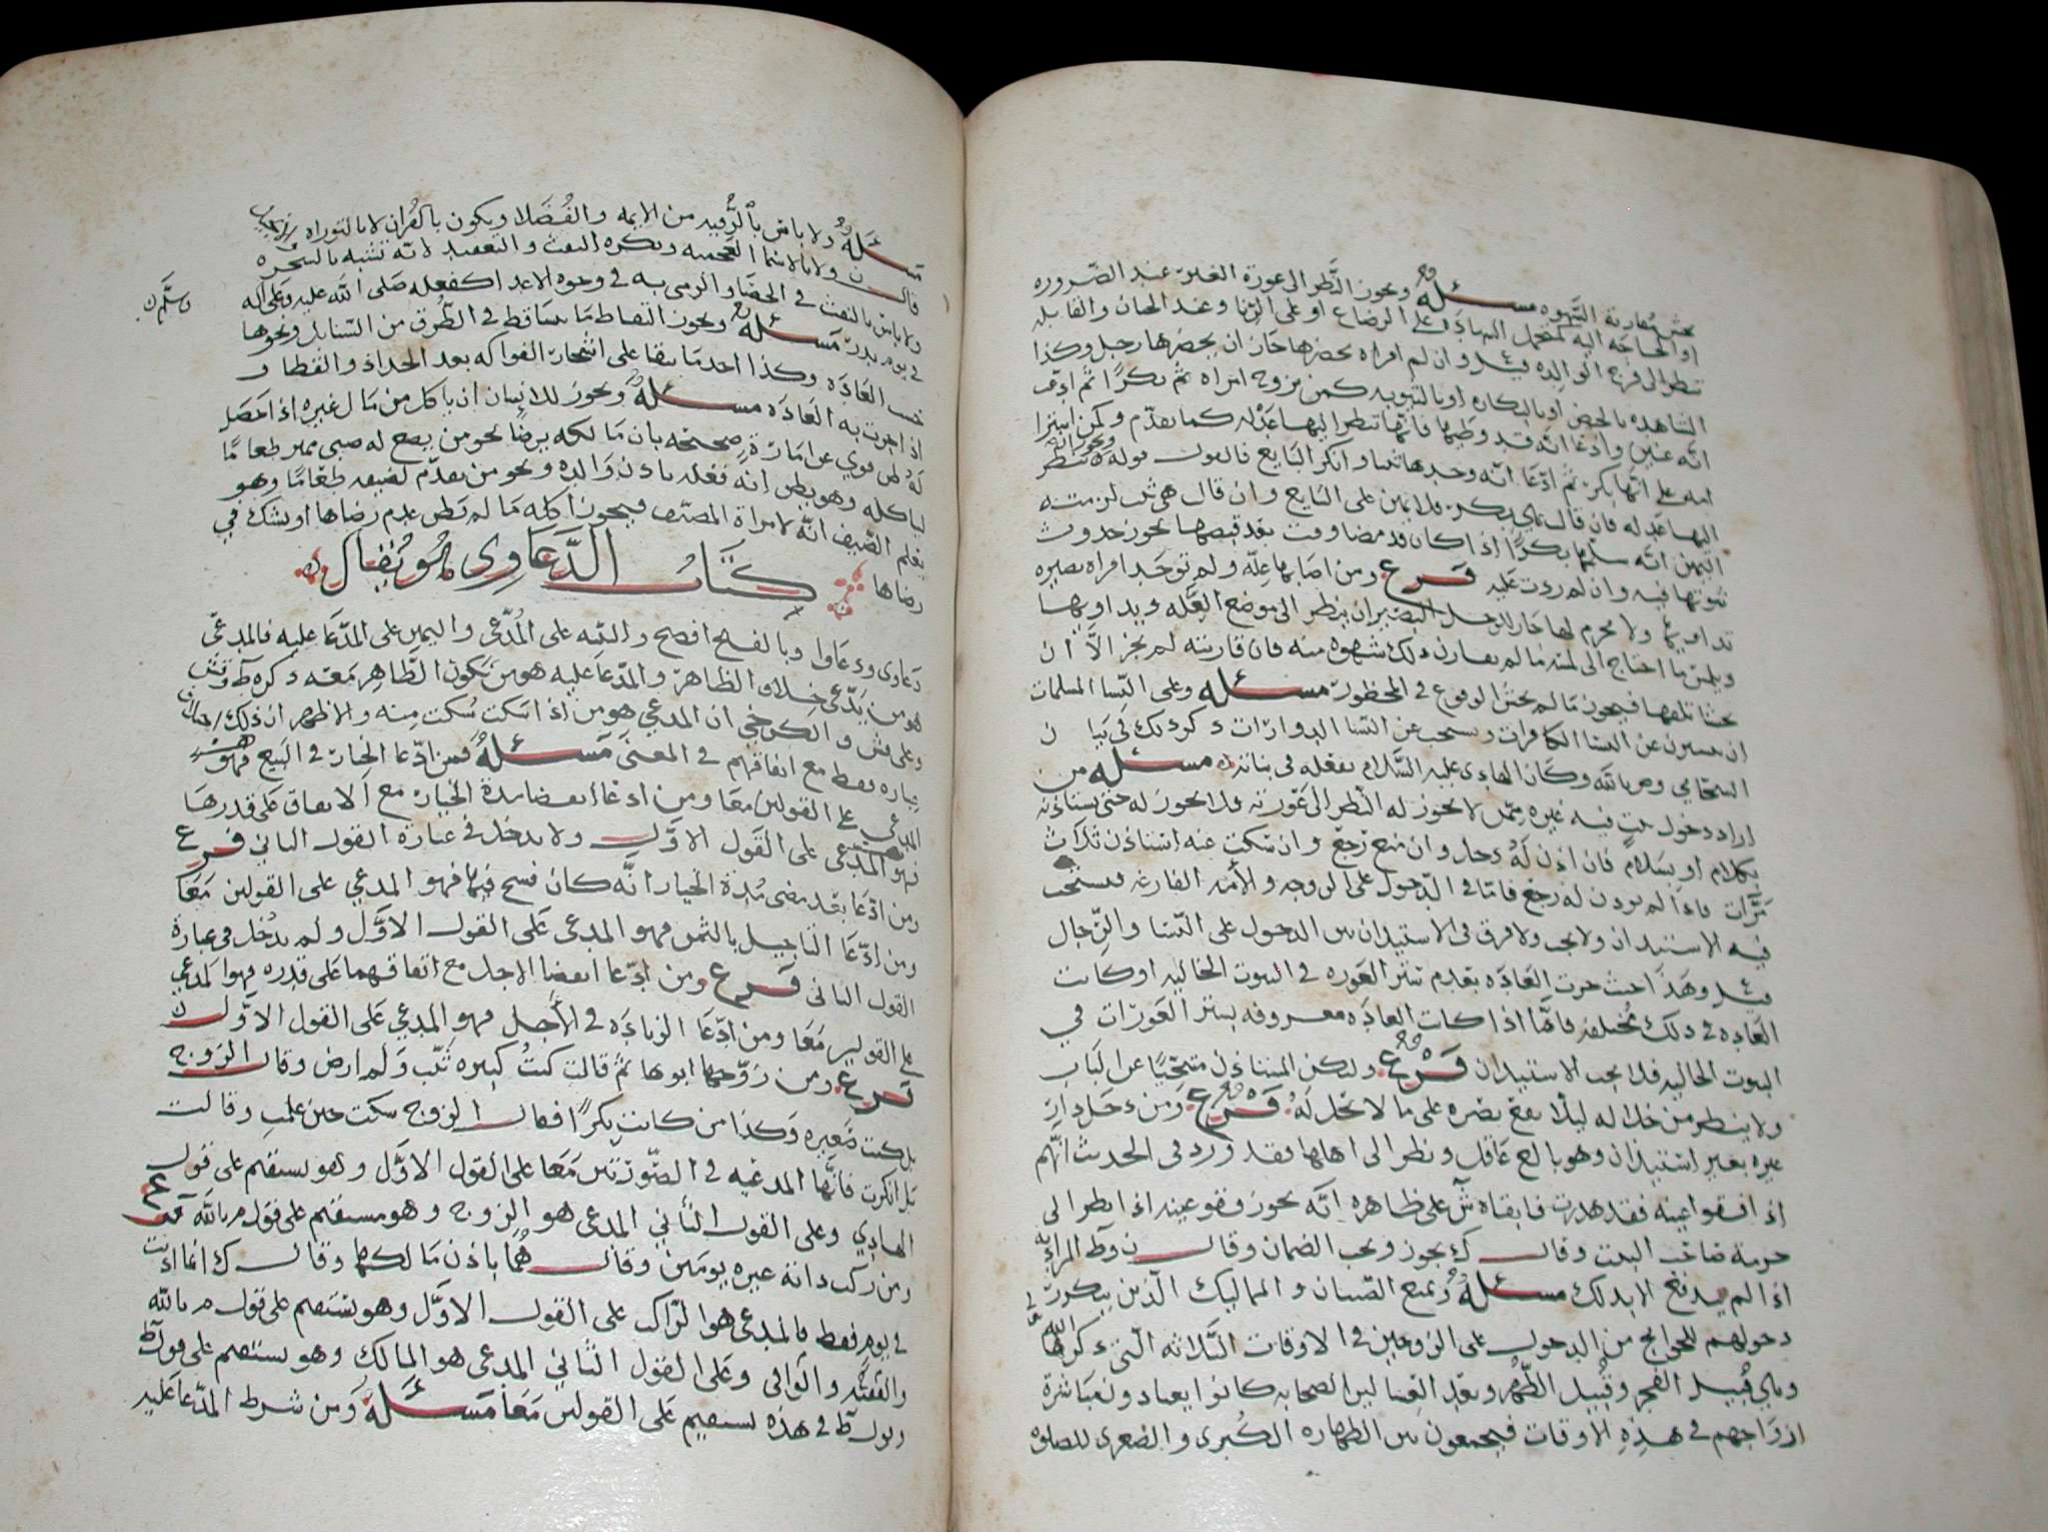 مسئله ويجوز النظر الى عورة الغير عند الضروره
او الحاجه اليه كتحمل الشهادة على الرضاع او على الزنا وعند الختان والقابله
تنظر الى فرج الوالده قيل وان لم امراه تحضرها جاز ان يحضرها رجل وكذا
الشاهده بالحيض او بالبكاره او بالثيوبه كمن تزوج امراه ثم
انه عنين وادعا انه قد وطيها فانها تنظر اليها عدله كما تقدم وكمن اشترا
امه على انها بكر ثم ادعا انه وجدها ثيبا وانكر البايع فالقول قوله وتنظر
اليها عدله فان قال هي بكر فلا يمين على البايع وان قال هي ثيب لزمته
اليمين انه سلمها بكرا اذا كان قد مضا وقت بعد قبضها يجوز حدوث
ثيوبتها فيه وان لم ردت عليه فرع ومن اصابها عله ولم توجد امراه بصيره
تداويها ولا محرم لها جاز للرجل البصير ان ينظر الى موضع العله ويداويها
ويلمس ما احتاج الى لمسه ما لم يقارن ذلك شهوه منه فان قارنته لم يجز الا ان
يخشا تلفها فيجوز ما لم يخش الوقوع في المحظور مسئله وعلى النسا المسلمات
ان يستترن عن النسا الكافرات ويستحب عن النسا الدوارات ذكر ذلك في بيان ن
السحامي وم بالله وكان الهادي عليه السلام يفعله في بناته مسئله من
اراد دخول بيت فيه غيره ممن لا يجوز له النظر الى عورته فلا يجوز له حتى يستاذنه
بكلام او بسلام فان اذن له دخل وان منع رجع وان سكت عنه استاذن ثلاث
مرات فاذا لم يوذن له رجع فاما في الدخول على الزوجه والأمه الفارغه فيستحب
فيه الاستيذان ولا يجب ولا فرق في الاستيذان بين الدخول على النسا والرجال
قيل وهذا حيث جرت العاده بعدم ستر العوره في البيوت الخاليه او كانت
العاده في ذلك مختلفه فاما اذا كانت العاده معروفه بستر العورات في
البيوت الخاليه فلا يجب الاستيذان فرع وليكن المستاذن متنحيا عن الباب
ولا ينظر من خلاله ليلا يقع بصره على ما لا يحل له فرع ومن دخل دار
غيره بغير استيذان وهو بالغ عاقل ونظر الى اهلها فقد ورد في الحديث انهم
اذا فقوا عينه فقد هدرت فابقاه ش على ظاهره انه يجوز فقو عينه اذا نظر الى
حرمة صاحب البيت وقال ك يجوز ويجب الضمان وقال ن وط المراد به
اذا لم يندفع الا بذلك مسئله ويمنع الصبيان والمماليك الذين يتكرر
دخولهم للحوايج من الدخول على الزوجين في الاوقات الثلاثه التي ذكرها الله
وهي قبيل الفجر وقبيل الظهر وبعد العشا لان الصحابه كانوا يعتادون مباشرة
ازواجهم في هذه الاوقات فيجمعون بين الطهاره الكبرى والصغرى للصلوه
مسئله ولا باس بالرقيه من الايمه والفضلا ويكون بالقران لا بالتوراه
قال ن ولا بالاسما العجميه ويكره النفث والتعقيد لانه تشبه بالسحره
ولا باس بالنفث في الحصا والرمي به في وجوه الاعدا كفعله صلى الله عليه وعلى اله
وسلم
في يوم بدر مسئله ويجوز التقاط ما يتساقط في الطرق من السنابل ونحوها
حسب العاده وكذا اخذ ما يبقا على اشجار الفواكه بعد الجذاذ والقطاف
اذا جرت به العاده مسئله ويجوز للانسان ان ياكل من مال غيره اذا حصل
له ظن قوي عن امارة صحيحه بان مالكه يرضا نحو من يضع له صبي مميز طعاما
لياكله وهو يظن انه فعله باذن والده ونحو من يقدم لضيفه طعاما وهو
يعلم الضيف انه لامراة المضيف فيجوز اكله ما لم يظن عدم رضاها او يشك في
رضاها كتاب الدعاوى هو يقال
دعاوى ودعاوا وبالفتح افصح والبينه على المدعى واليمين على المدعا عليه فالمدعي
هو من يدعي خلاف الظاهر والمدعا عليه هو من يكون الظاهر معه ذكره ط وش
وعلى قش والكرخي ان المدعي هو من اذا سكت سكت منه والاظهر ان ذلك
عباره فقط مع اتفاقهم في المعنى مسئله فمن ادعا الخيار في البيع فهو
المدعي على القولين معا ومن ادعا انقضا مدة الخيار مع الاتفاق على قدرها
فهو المدعي على القول الاول ولا يدخل في عبارة القول الثاني فرع
ومن ادعا بعد مضي مدة الخيار انه كان فسخ فيها فهو المدعي على القولين معا
ومن ادعا التاجيل بالثمن فهو المدعى على القول الاول ولم يدخل في عبارة
القول الثاني فرع ومن ادعا انقضا الاجل مع اتفاقهما على قدره فهو المدعي
على القولين معا ومن ادعا الزياده في الأجل فهو المدعي على القول الاول ن
فرع ومن زوجها ابوها ثم قالت كنت كبيره ثيب ولم ارض وقال الزوج
بل كنت صغيره وكذا من كانت بكرا فقال الزوج سكت حين علمت وقالت
بل انكرت فانها المدعيه في الصورتين معا على القول الاول وهو يستقيم على قول
الهادي وعلى القول الثاني المدعي هو الزوج وهو مستقيم على قول م بالله فرع
ومن ركب دابة غيره يومين وقال هما باذن مالكها وقال ك انما اذنت
في يوم فقط فالمدعي هو الراكب على القول الاول وهو يستقيم على قول م بالله
والفقيه والوافي وعلى القول الثاني المدعي هو المالك وهو يستقيم على قول ط
وقول ط في هذه يستقيم على القولين معا مسئله ومن شرط المدعا عليه